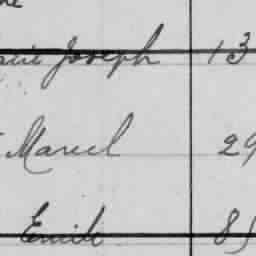 Joseph 13
Marcel 29
Emile 85